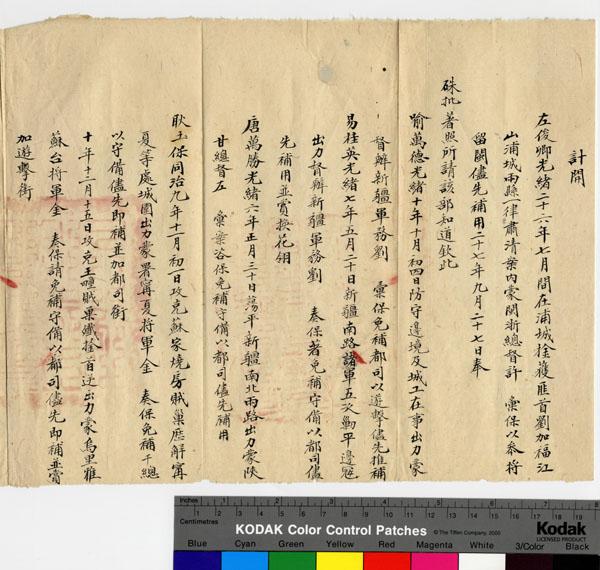 計開
左俊卿光緒二十六年七月間在浦城拴獲匪首劉加福江
山浦城兩縣一律肅清案內蒙閩浙總督許 彙保以參將
留閩儘先補用二十七年九月二十七日奉
硃批著照所請該部知道欽此
喻萬德光緒十年十月初四日防守邊境及城工在事出力蒙
督辦新疆軍務劉 彙保免補都司以遊擊儘先推補
易桂英光緒七年五月二十日新疆南路諸軍五次勦平邊寇
出力督辦新疆軍務劉 奏保著免補守備以都司儘
先補用並賞換花翎
唐萬勝光緒六年正月二十日蕩平新疆南北兩路出力蒙陝
甘總督左 彙案咨保免補守備以都司儘先補用
耿玉保同治九年十一月初一日攻克蘇家燒房賊巢應解甯
夏等處城圍出力蒙署甯夏將軍金 奏保免補千總
以守備儘先即補並加都司銜
十年十二月十五日攻克王疃賊巢殲拴首逆出力蒙烏里雅
蘇台將軍金 奏保請免補守備以都司儘先即補並賞
加遊擊銜
inches 1 2 3 4 5 6 7 8
Centimetres 1 2 3 4 5 6 7 8 9 10 11 12 13 14 15 16 17 18 19
KODAK Color Control Patches
© The Tiffen Company, 2000
Kodak
LICENSED PRODUCT
Blue Cyan Green Yellow Red Magenta White 3/Color Black